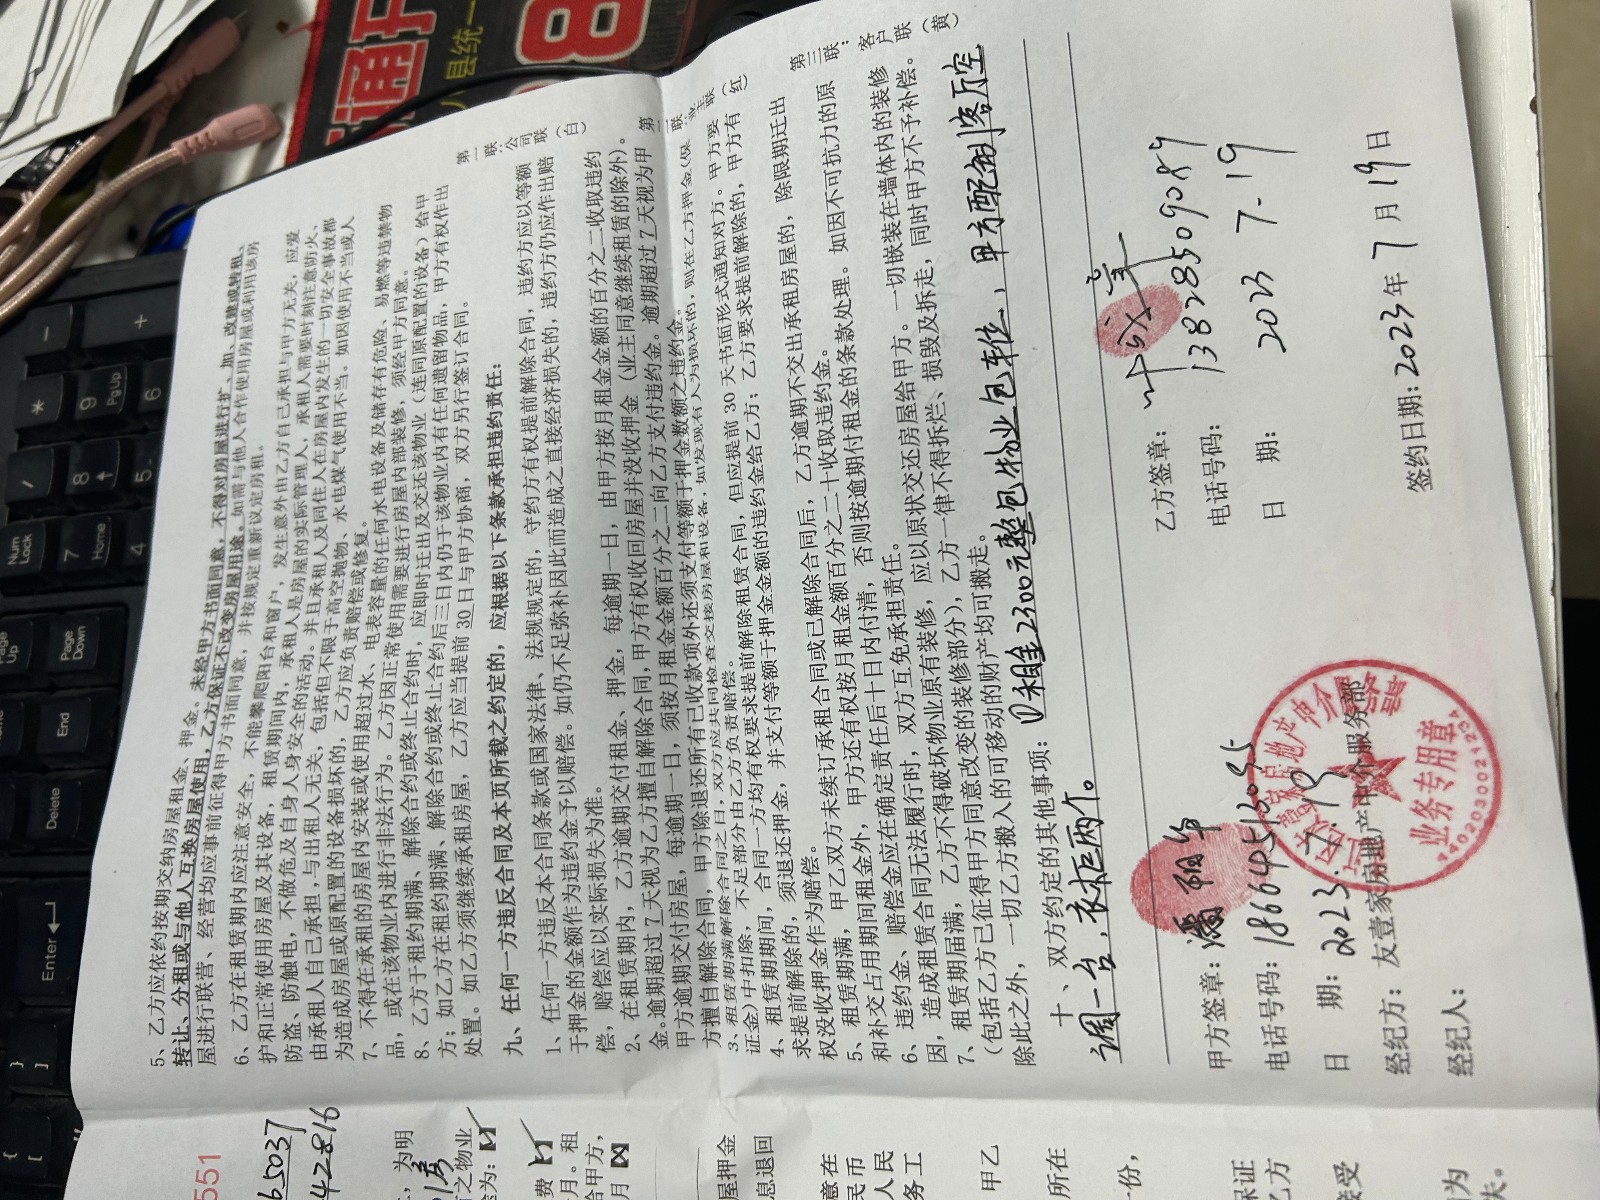 5、乙方应依约按期交纳房屋租金、押金。未经甲方书面同意，不得对房屋进行扩、加、改建或转租、
转让、分租或与他人互换房屋使用，乙方保证不改变房屋用途。如需与他人合作使用房屋或利用该房
屋进行联营、经营均应事前征得甲方书面同意，并按规定重新议定房租。
6、乙方在租赁期内应注意安全，不能攀爬阳台和窗户，发生意外由乙方自己承担与甲方无关，应爱
护和正常使用房屋及其设备，租赁期间内，承租人是房屋的实际管理人，承租人需要时刻注意防火、
防盗、防触电，不做危及自身人身安全的活动。并且承租人及同住人在房屋内发生的一切安全事故都
由承租人自己承担，与出租人无关，包括但不限于高空抛物、水电煤气使用不当。如因使用不当或人
为造成房屋或原配置的设备损坏的，乙方应负责赔偿或修复。
7、不得在承租的房屋内安装或使用超过水、电表容量的任何水电设备及储存有危险、易燃等违禁物
品，或在该物业内进行非法行为。乙方因正常使用需要进行房屋内部装修，须经甲方同意。
8、乙方于租约期满、解除合约或终止合约时，应即时迁出及交还该物业（连同原配置的设备）给甲
方；如乙方在租约期满、解除合约或终止合约后三日内仍于该物业内有任何遗留物品，甲方有权作出
处置。如乙方须继续承租房屋，乙方应当提前30日与甲方协商，双方另行签订合同。
九、任何一方违反合同及本页所载之约定的，应根据以下条款承担违约责任：
1、任何一方违反本合同条款或国家法律、法规规定的，守约方有权提前解除合同，违约方应以等额
于押金的金额作为违约金予以赔偿。如仍不足弥补因此而造成之直接经济损失的，违约方仍应作出赔
偿，赔偿应以实际损失为准。
2、在租赁期内，乙方逾期交付租金、押金，每逾期一日，由甲方按月租金金额的百分之二收取违约
金。逾期超过7天视为乙方擅自解除合同，甲方有权收回房屋并没收押金（业主同意继续租赁的除外）。
甲方逾期交付房屋，每逾期一日，须按月租金金额百分之二向乙方支付违约金。逾期超过7天视为甲
方擅自解除合同，甲方除退还所有已收款项外还须支付等额于押金数额之违约金。
3、租赁期满解除合同之日，双方应共同检查交接房屋和设备，如发现有人为损坏的，则在乙方押金（保
证金）中扣除，不足部分由乙方负责赔偿。
4、租赁期期间，合同一方均有权要求提前解除租赁合同，但应提前30天书面形式通知对方。甲方要
求提前解除的，须退还押金，并支付等额于押金金额的违约金给乙方；乙方要求提前解除的，甲方有
权没收押金作为赔偿。
5、租赁期满，甲乙双方未续订承租合同或已解除合同后，乙方逾期不交出承租房屋的，除限期迁出
和补交占用期间租金外，甲方还有权按月租金额百分之二十收取违约金。
6、违约金、赔偿金应在确定责任后十日内付清，否则按逾期付租金的条款处理。如因不可抗力的原
因，造成租赁合同无法履行时，双方互免承担责任。
7、租赁期届满，乙方不得破坏物业原有装修，应以原状交还房屋给甲方。一切嵌装在墙体内的装修
（包括乙方已征得甲方同意改变的装修部分），乙方一律不得拆烂、损毁及拆走，同时甲方不予补偿。
除此之外，一切乙方搬入的可移动的财产均可搬走。
十、双方约定的其他事项：租金2300元整包物业包车位、甲方配制客厅空
调一台，衣柜两个。
第一联：公司联（白）
第二联：业主联（红）
第三联：客户联（黄）
甲方签章：潘
电话号码：
日期：2023.7.19
经纪方：友壹家房地产中介服务部
经纪人：
乙方签章：叶
电话号码：13828509089
日期：2023 7.19
签约日期：2023年7月19日
业务专用章
4402030021254
551
65037
42816
，为明
之物业
为：
费
月。租
给甲方，
月
屋押金
息退回
意在
民币
人民
务工
甲乙
所在
份，
保证
乙方
接受
为
失。
Num Lock
/
*
-
7 Home
8
9 PgUp
+
4
5
6
Page Up
Page Down
End
Delete
Enter
通
县统一
8